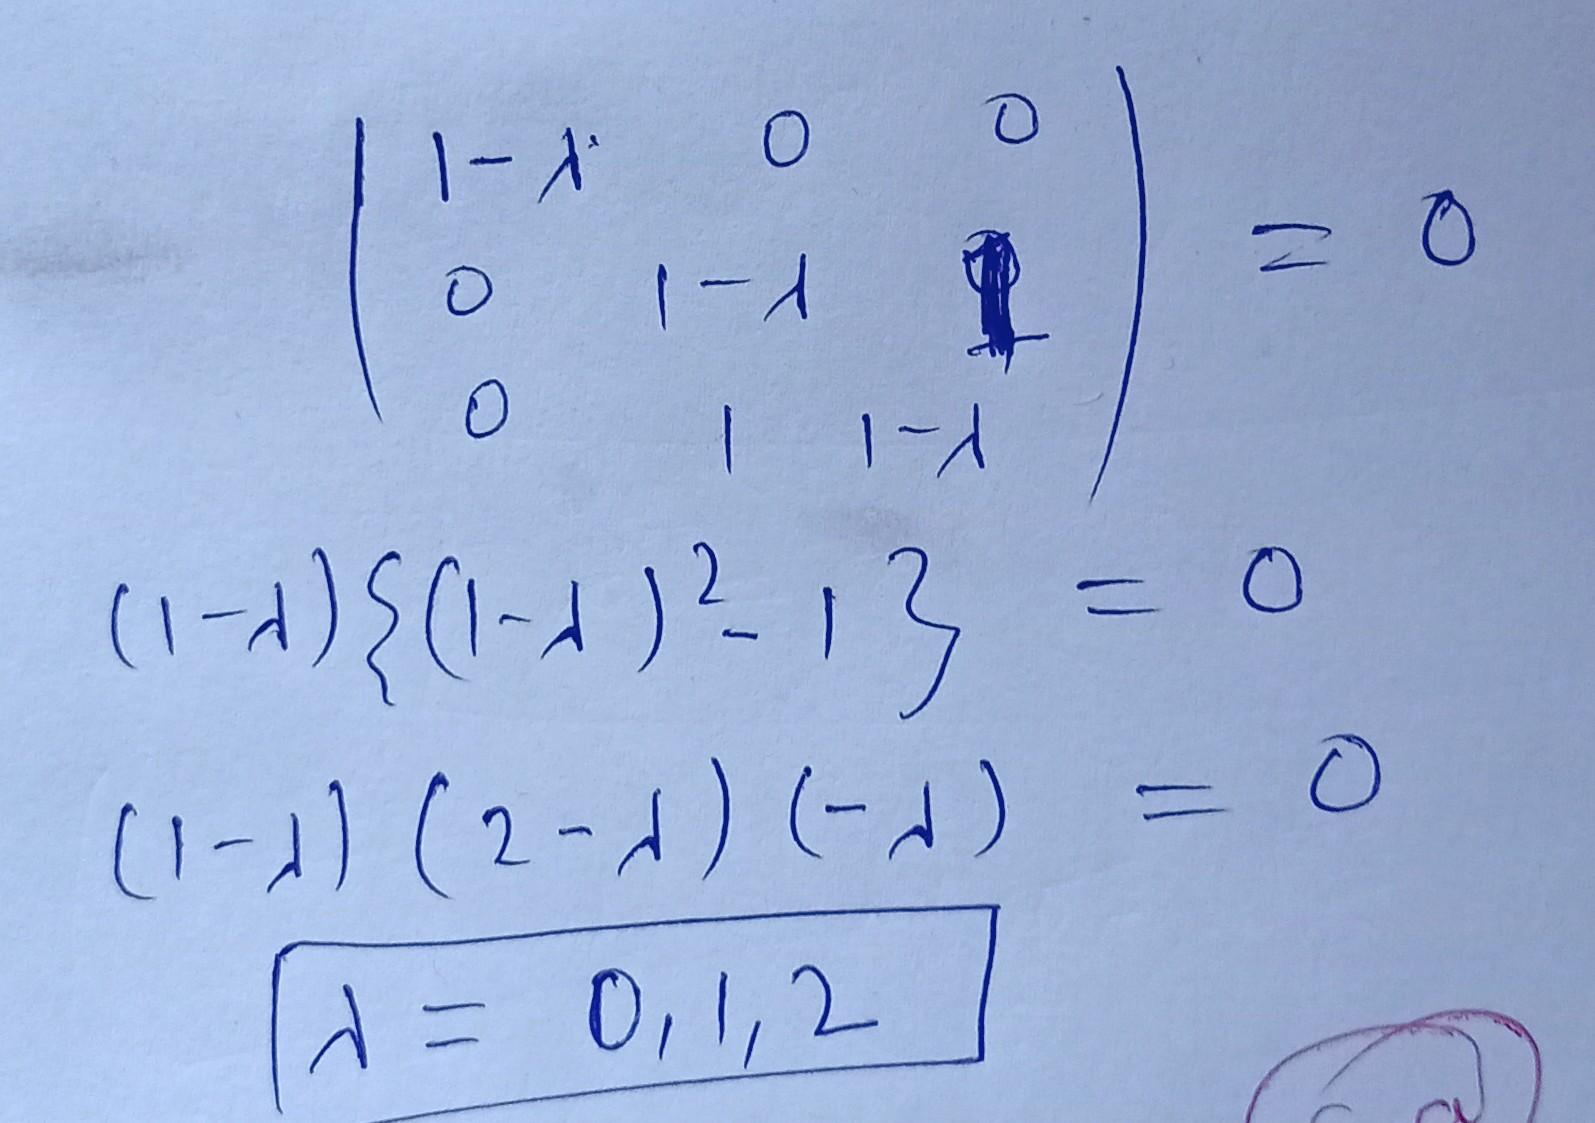 | 1-λ 0 0 |
| 0 1-λ 1 | = 0
| 0 1 1-λ |
(1-λ){(1-λ)²-1} = 0
(1-λ)(2-λ)(-λ) = 0
λ = 0,1,2